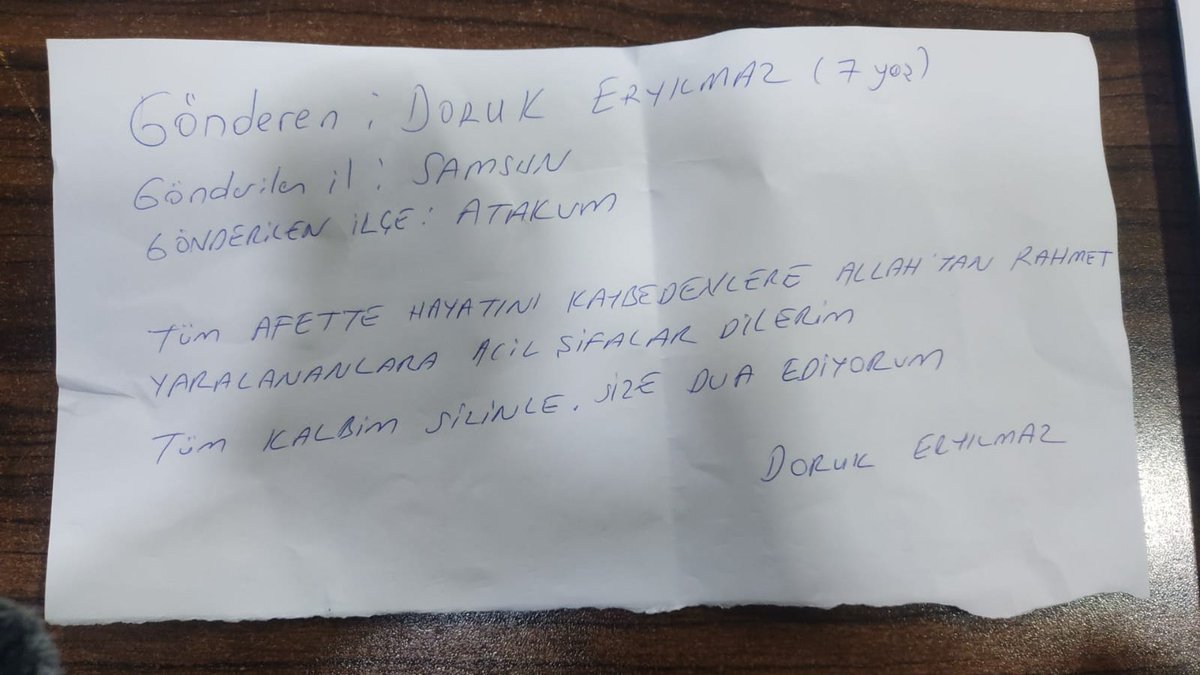 Gönderen : DORUK ERYILMAZ (7 yaş)
Gönderilen il : SAMSUN
GÖNDERİLEN İLÇE : ATAKUM
TÜM AFETTE HAYATINI KAYBEDENLERE ALLAH'TAN RAHMET
YARALANANLARA ACİL ŞİFALAR DİLERİM
TÜM KALBİM SİLİNLE. SİZE DUA EDİYORUM
DORUK ERYILMAZ